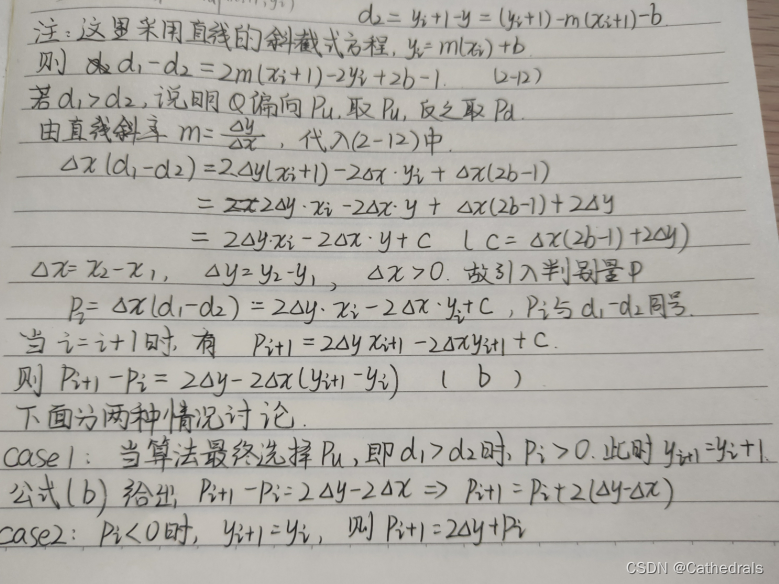 d₂ = yᵢ+1-y = (yᵢ+1)-m(xᵢ+1)-b
注:这里采用直线的斜截式方程, yᵢ=m(xᵢ)+b
则 d₁-d₂=2m(xᵢ+1)-2yᵢ+2b-1. (2-12)
若d₁>d₂,说明Q偏向Pu,取Pu,反之取Pd
由直线斜率 m=Δy/Δx ,代入(2-12)中.
Δx(d₁-d₂)=2Δy(xᵢ+1)-2Δx·yᵢ+Δx(2b-1)
= 2Δy·xᵢ-2Δx·y+Δx(2b-1)+2Δy
= 2Δy·xᵢ-2Δx·y+c ( c=Δx(2b-1)+2Δy)
Δx=x₂-x₁, Δy=y₂-y₁, Δx>0. 故引入判别量P
Pᵢ=Δx(d₁-d₂)=2Δy·xᵢ-2Δx·yᵢ+c,Pᵢ与d₁-d₂同号.
当i=i+1时,有 Pᵢ₊₁=2Δyxᵢ₊₁-2Δxyᵢ₊₁+c.
则Pᵢ₊₁-Pᵢ=2Δy-2Δx(yᵢ₊₁-yᵢ) ( b )
下面分两种情况讨论.
case1: 当算法最终选择Pu,即d₁>d₂时,Pᵢ>0.此时yᵢ₊₁=yᵢ+1.
公式(b)给出 Pᵢ₊₁-Pᵢ=2Δy-2Δx⇒Pᵢ₊₁=Pᵢ+2(Δy-Δx)
case2: Pᵢ<0时, yᵢ₊₁=yᵢ, 则Pᵢ₊₁=2Δy+Pᵢ
CSDN @Cathedrals